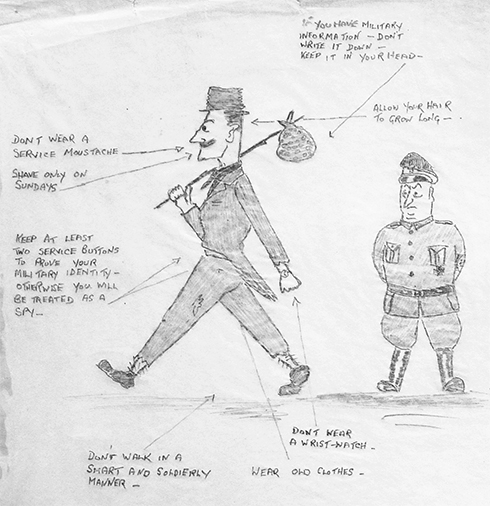 IF YOU HAVE MILITARY
INFORMATION – DON'T
WRITE IT DOWN –
KEEP IT IN YOUR HEAD –
ALLOW YOUR HAIR
TO GROW LONG –
DON'T WEAR A
SERVICE MOUSTACHE
SHAVE ONLY ON
SUNDAYS
KEEP AT LEAST
TWO SERVICE BUTTONS
TO PROVE YOUR
MILITARY IDENTITY –
OTHERWISE YOU WILL
BE TREATED AS A
SPY –
DON'T WEAR
A WRIST-WATCH –
DON'T WALK IN A
SMART AND SOLDIERLY
MANNER –
WEAR OLD CLOTHES –